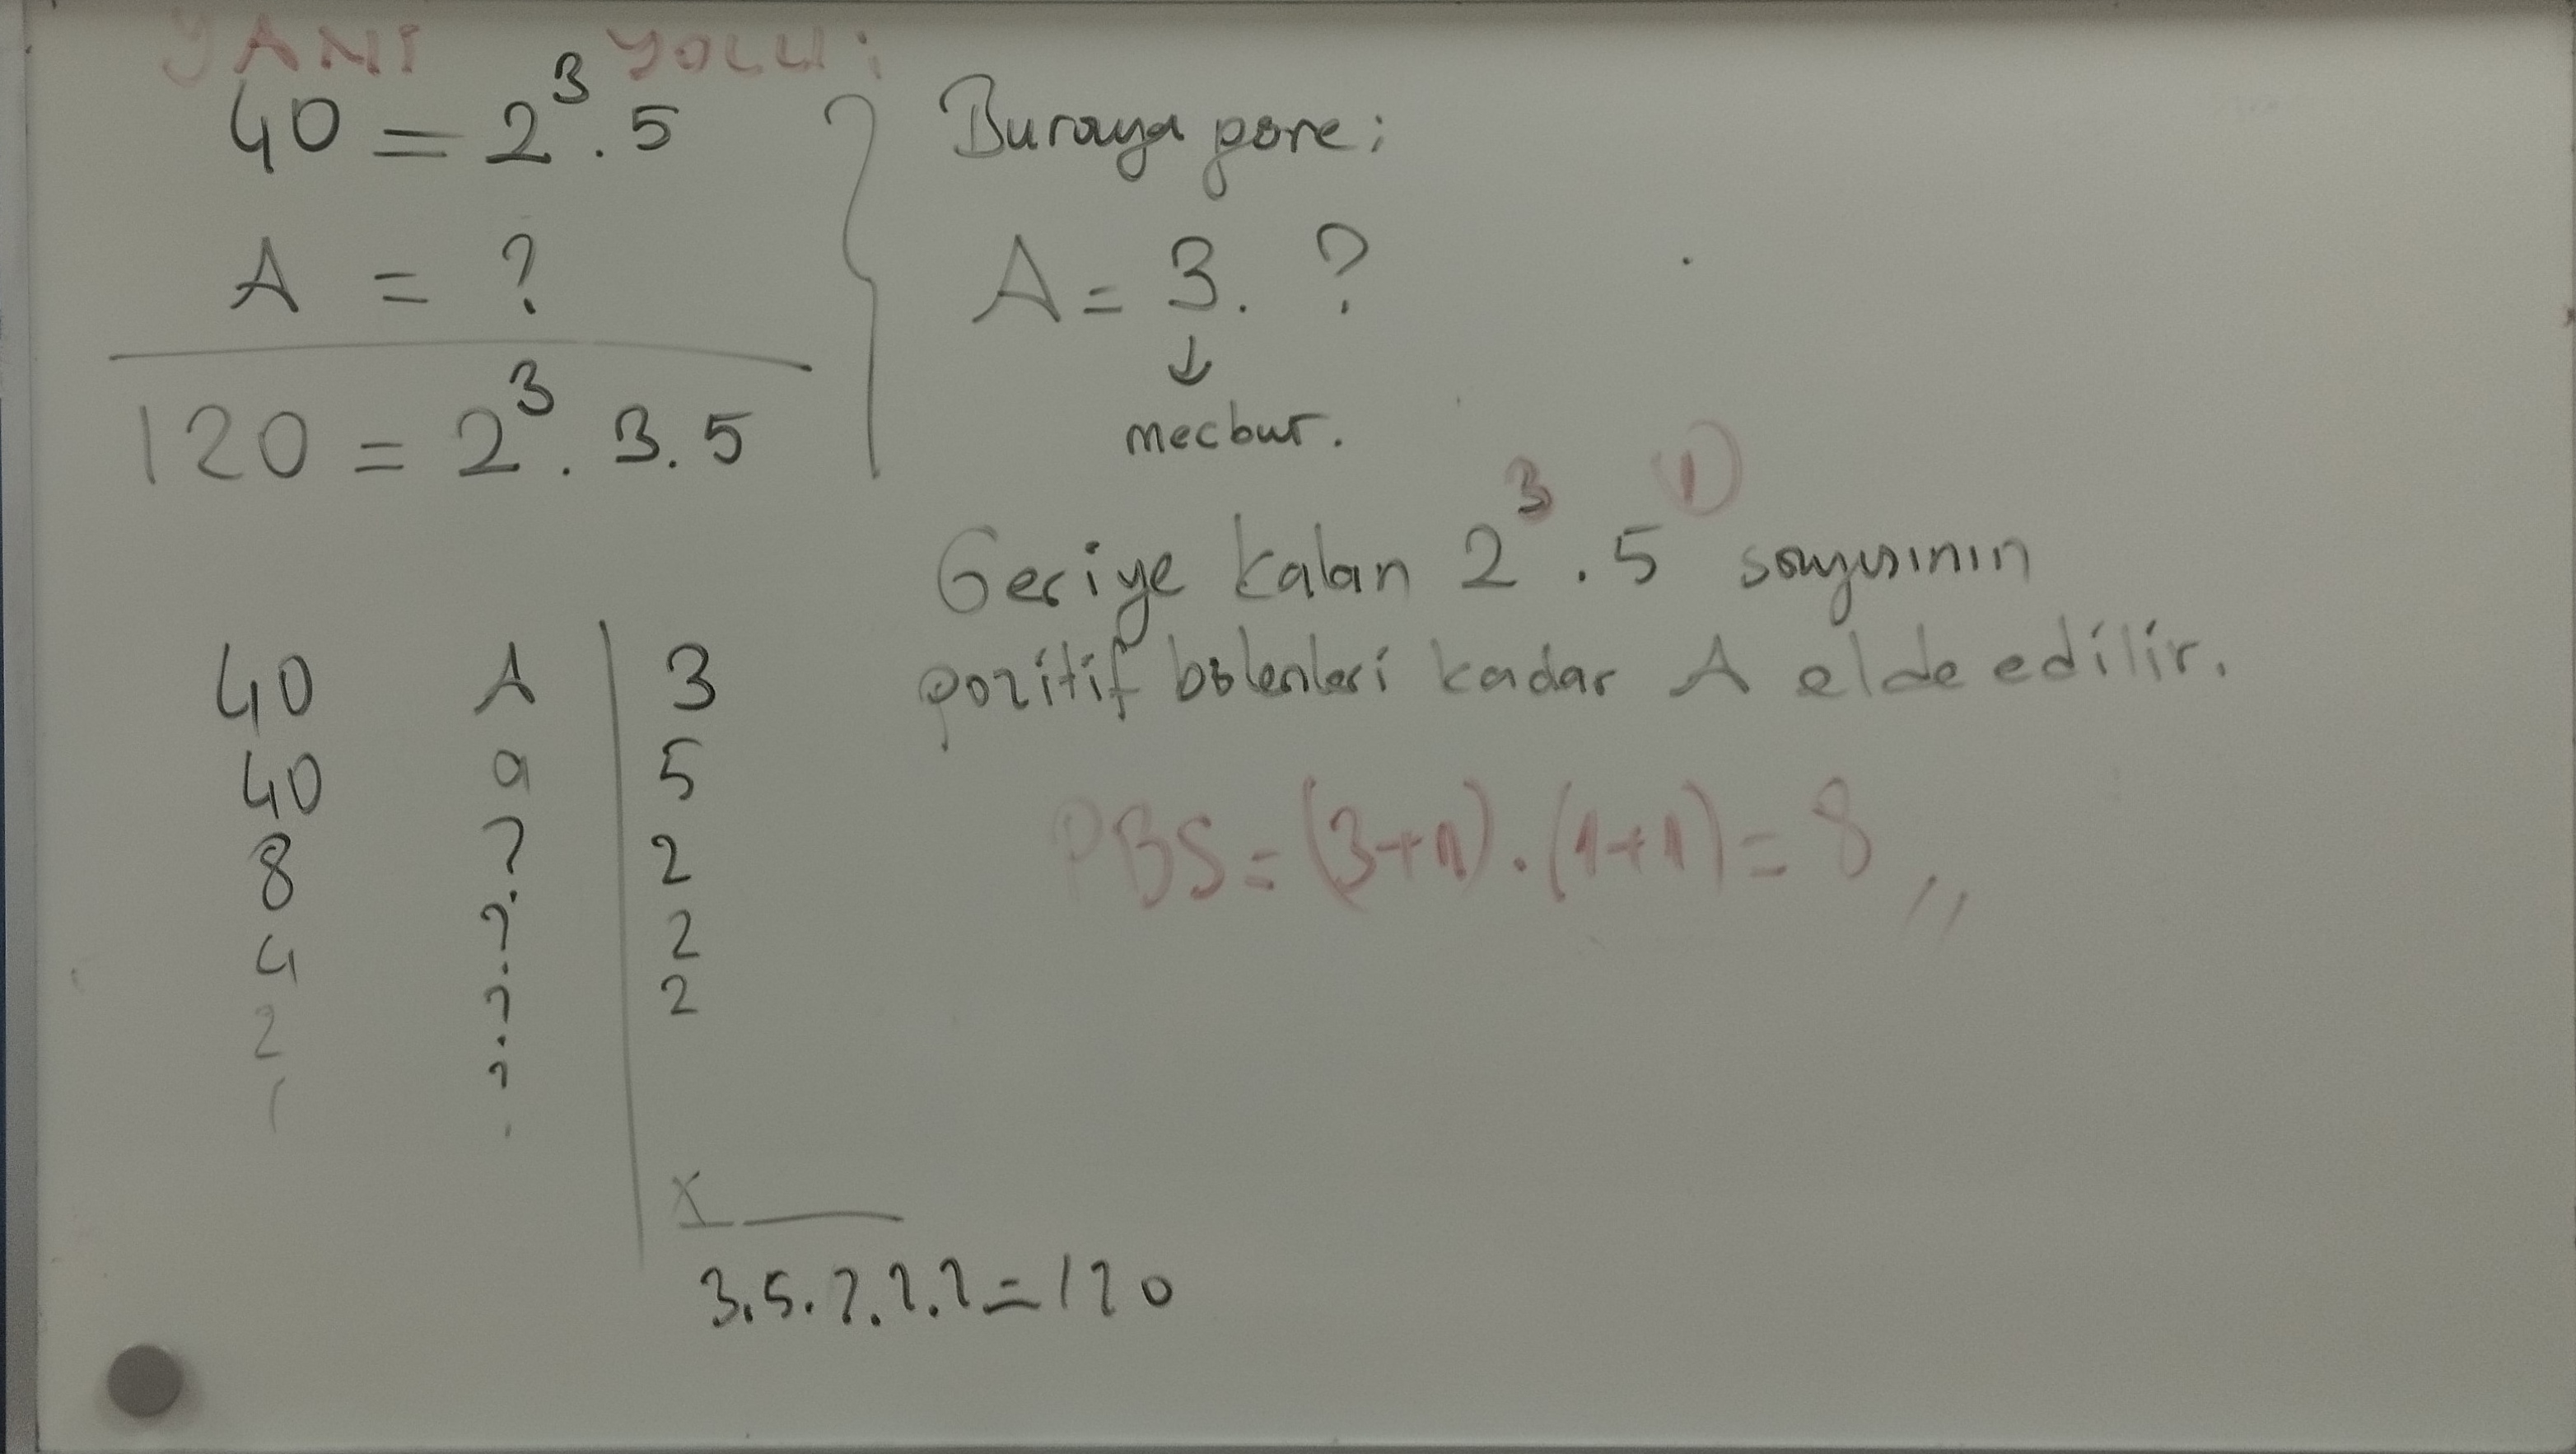 YANİ YOLU:
40 = 2³ . 5
A = ?
120 = 2³ . 3 . 5
Buraya göre;
A = 3 . ?
↓
mecbur.
Geriye kalan 2³ . 5① sayısının
pozitif bölenleri kadar A elde edilir.
PBS = (3+1) . (1+1) = 8 //
40 A | 3
40 a | 5
8 ? | 2
4 ? | 2
2 ? | 2
1 ?
x
3.5.2.2.2 = 120